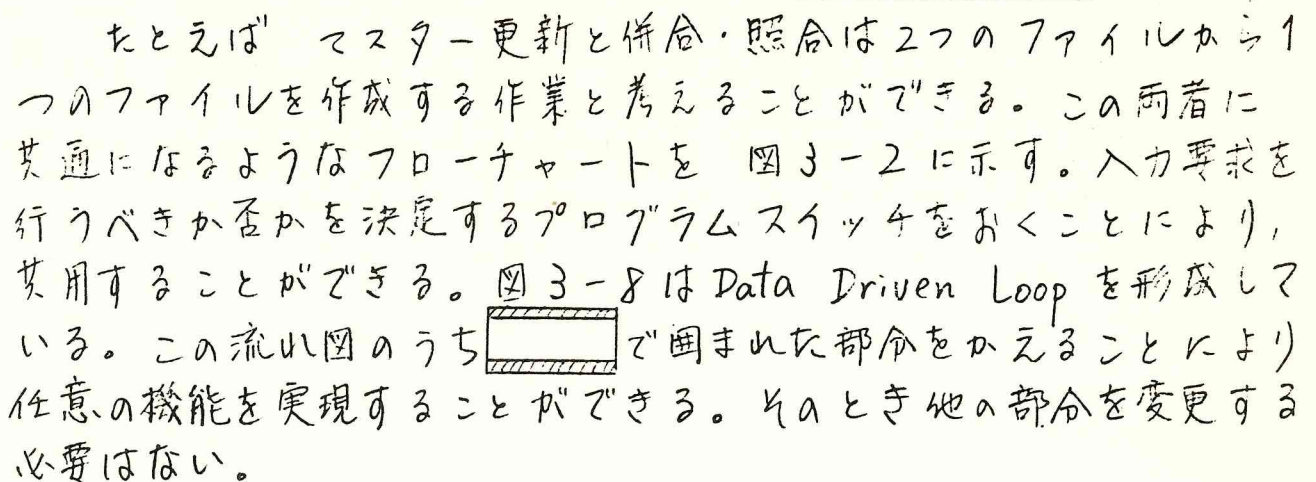 たとえば マスター更新と併合・照合は2つのファイルから1
つのファイルを作成する作業と考えることができる。この両者に
共通になるようなフローチャートを 図3-2に示す。入力要求を
行うべきか否かを決定するプログラムスイッチをおくことにより,
共用することができる。図3-8はData Driven Loopを形成して
いる。この流れ図のうち で囲まれた部分をかえることにより
任意の機能を実現することができる。そのとき他の部分を変更する
必要はない。